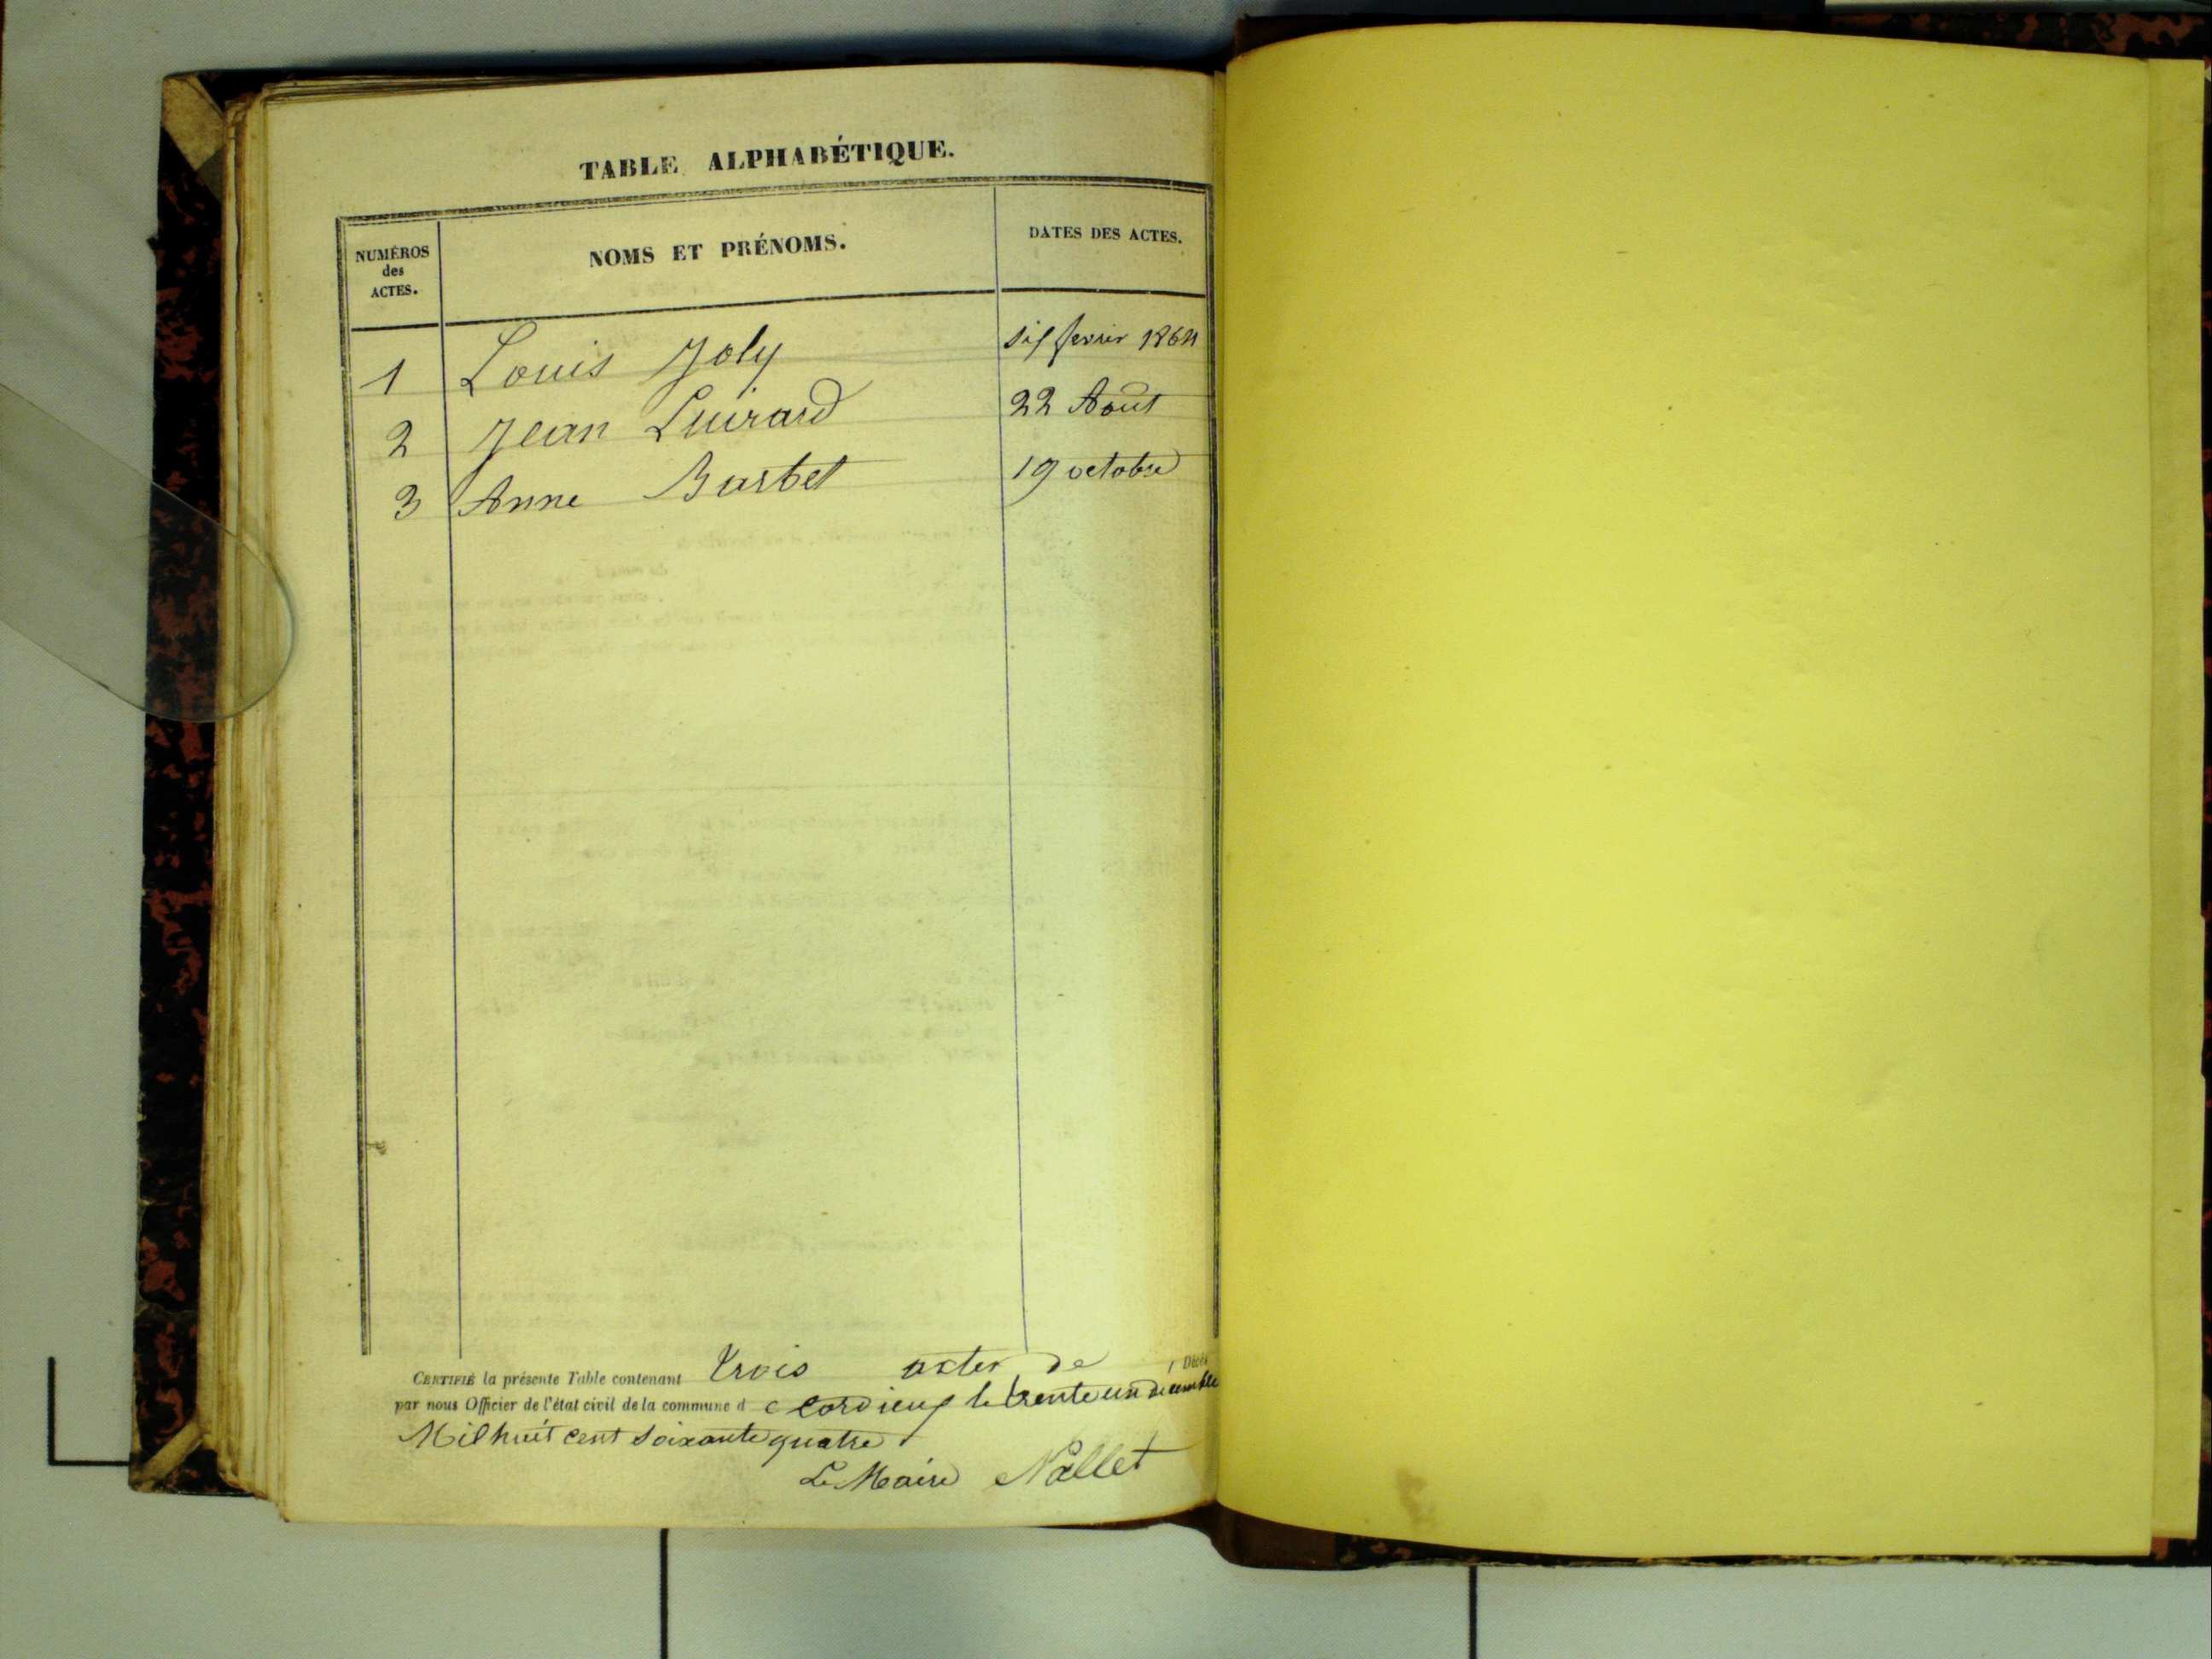 TABLE ALPHABÉTIQUE.
NUMÉROS
des
ACTES.
NOMS ET PRÉNOMS.
DATES DES ACTES.
1 Louis Joly six fevrier 1864
2 Jean Luirard 22 Août
3 Anne Barbet 19 octobre
CERTIFIÉ la présente Table contenant trois actes de Décès
par nous Officier de l'état civil de la commune d e Cordieux le trente un décembre
Mil huit cent soixante quatre
Le Maire Nallet